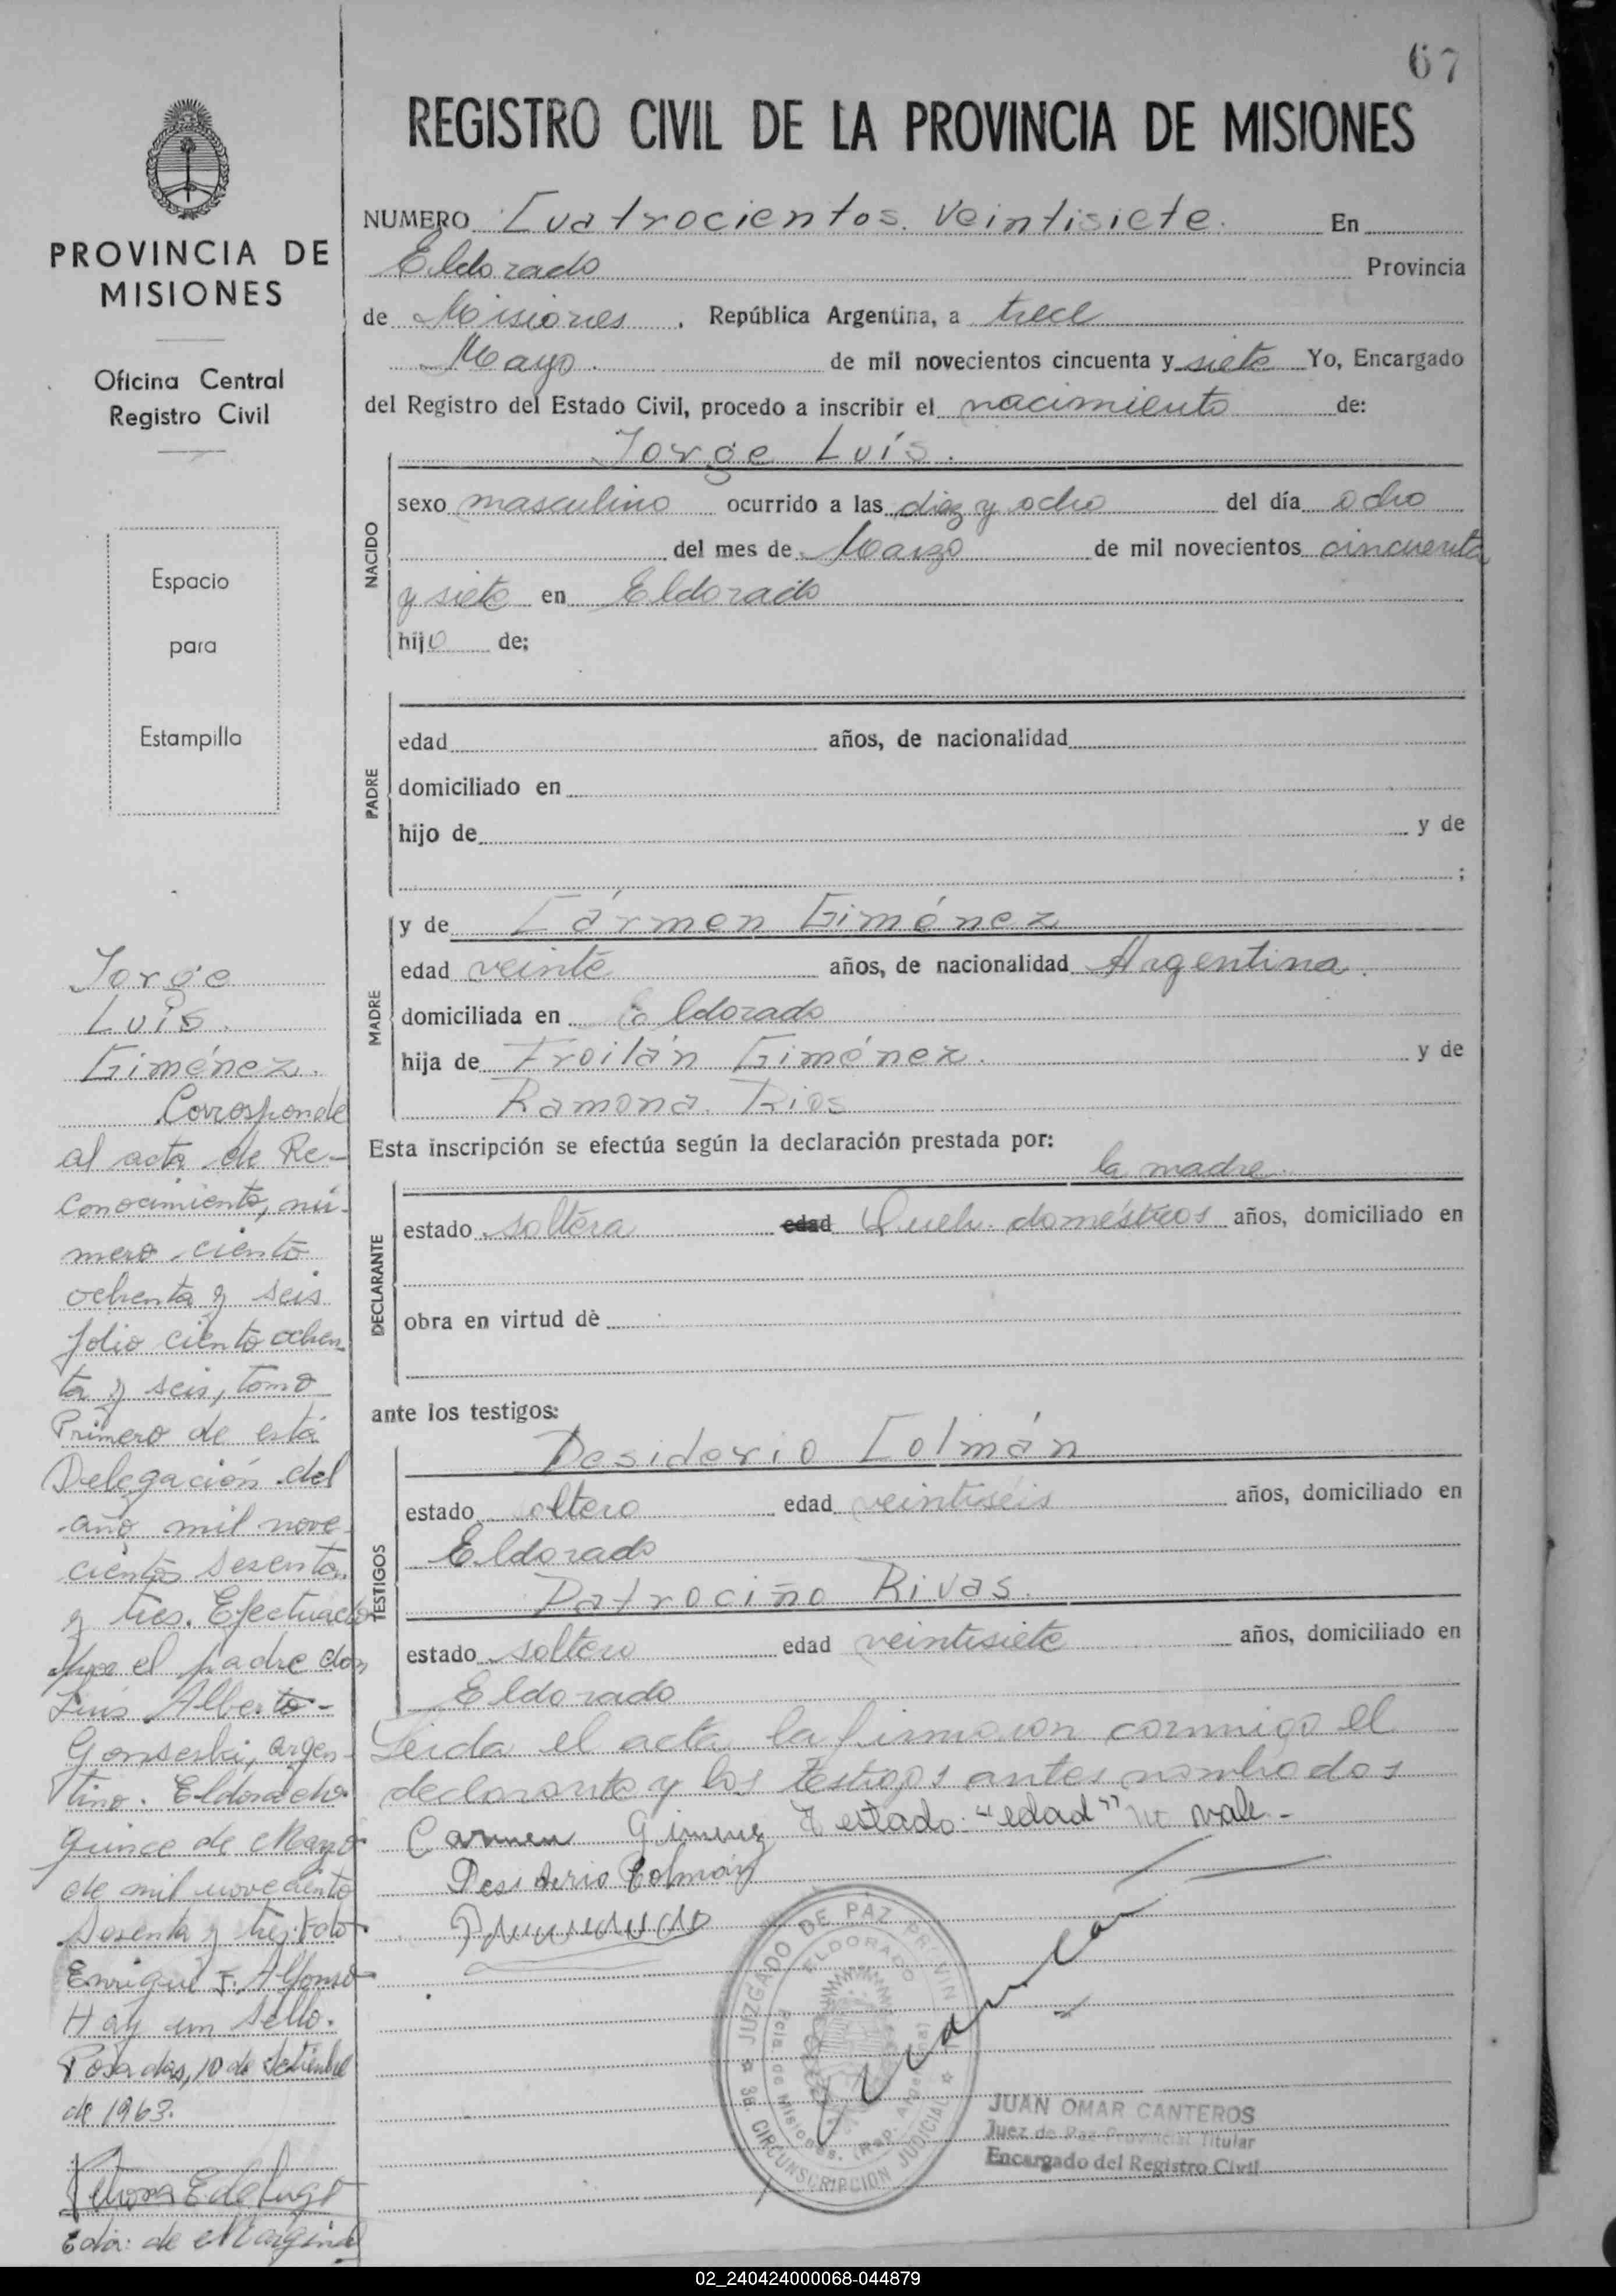 67
REGISTRO CIVIL DE LA PROVINCIA DE MISIONES
PROVINCIA DE
MISIONES
Oficina Central
Registro Civil
Espacio
para
Estampilla
Jorge
Luis
Giménez.
Corresponde
al acta de Re-
conocimiento, nú-
mero ciento
ochenta y seis
folio ciento ochen
ta y seis, tomo
Primero de está
Delegación del
año mil nove-
cientos sesenta
y tres. Efectuado
por el padre don
Luis Alberto
Gonserki, argen-
tino. Eldorado
quince de Mayo
de mil novecientos
sesenta y tres. Fdo
Enrique F. Alfonso
Hay un sello.
Posadas, 10 de Setiembre
de 1963.
NUMERO Cuatrocientos Veintisiete. En
Eldorado Provincia
de Misiones, República Argentina, a trece
Mayo. de mil novecientos cincuenta y siete Yo, Encargado
del Registro del Estado Civil, procedo a inscribir el nacimiento de:
NACIDO
Jorge Luís.
sexo masculino ocurrido a las diez y ocho del día ocho
del mes de Marzo de mil novecientos cincuenta
y siete en Eldorado
hijo de:
PADRE
edad años, de nacionalidad
domiciliado en
hijo de y de
;
MADRE
y de Cármen Giménez
edad veinte años, de nacionalidad Argentina.
domiciliada en Eldorado
hija de Froilán Giménez. y de
Ramona Rios
Esta inscripción se efectúa según la declaración prestada por:
la madre
DECLARANTE
estado soltera edad Queh. domésticos años, domiciliado en
obra en virtud de
ante los testigos:
TESTIGOS
Desiderio Colmán
estado soltero edad veintiseis años, domiciliado en
Eldorado
Patrociño Rivas.
estado soltero edad veintisiete años, domiciliado en
Eldorado
Leida el acta la firmaron conmigo el
declarante y los testigos antes nombrados
Carmen Gimenez Testado: "edad" no vale.-
Desiderio Colmán
JUZGADO DE PAZ PROVIN
ELDORADO
Pcia. de Misiones. (Rep. Argentina)
3a. CIRCUNSCRIPCION JUDICIAL
JUAN OMAR CANTEROS
Juez de Paz Provincial Titular
Encargado del Registro Civil
02_240424000068-044879